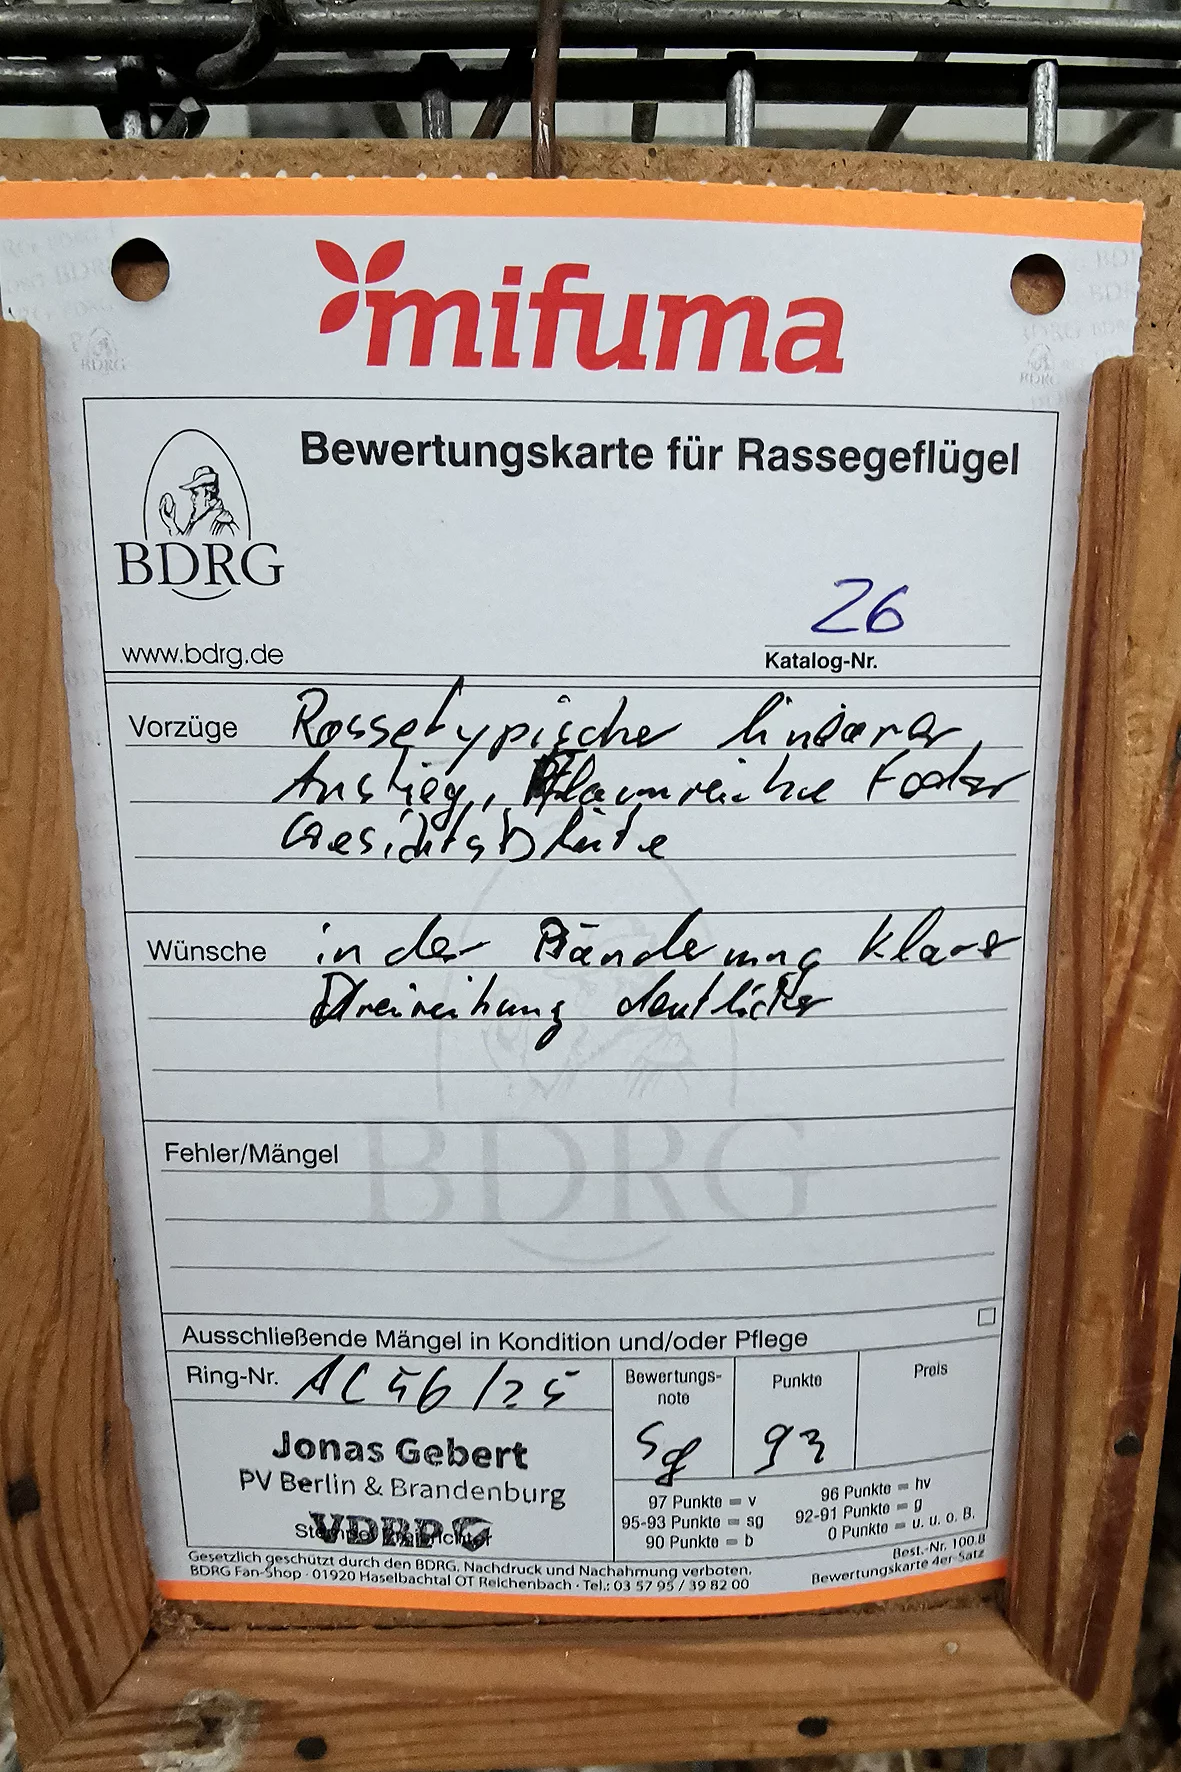 mifuma
Bewertungskarte für Rassegeflügel
BDRG
www.bdrg.de
26
Katalog-Nr.
Vorzüge Rassetypischer linearer
Anstieg, Flaumreiche Feder
Gesichtsblüte
Wünsche in der Bänderung klarer
Dreireihung deutlicher
Fehler/Mängel
BDRG
Ausschließende Mängel in Kondition und/oder Pflege
Ring-Nr. AC 56 / 25
Bewertungs-
note
Punkte
Preis
sg
93
Jonas Gebert
PV Berlin & Brandenburg
VDRP
97 Punkte = v
96 Punkte = hv
95-93 Punkte = sg
92-91 Punkte = g
90 Punkte = b
0 Punkte = u. u. o. B.
Gesetzlich geschützt durch den BDRG. Nachdruck und Nachahmung verboten.
BDRG Fan-Shop · 01920 Haselbachtal OT Reichenbach · Tel.: 03 57 95 / 39 82 00
Best.-Nr. 100.8
Bewertungskarte 4er-Satz